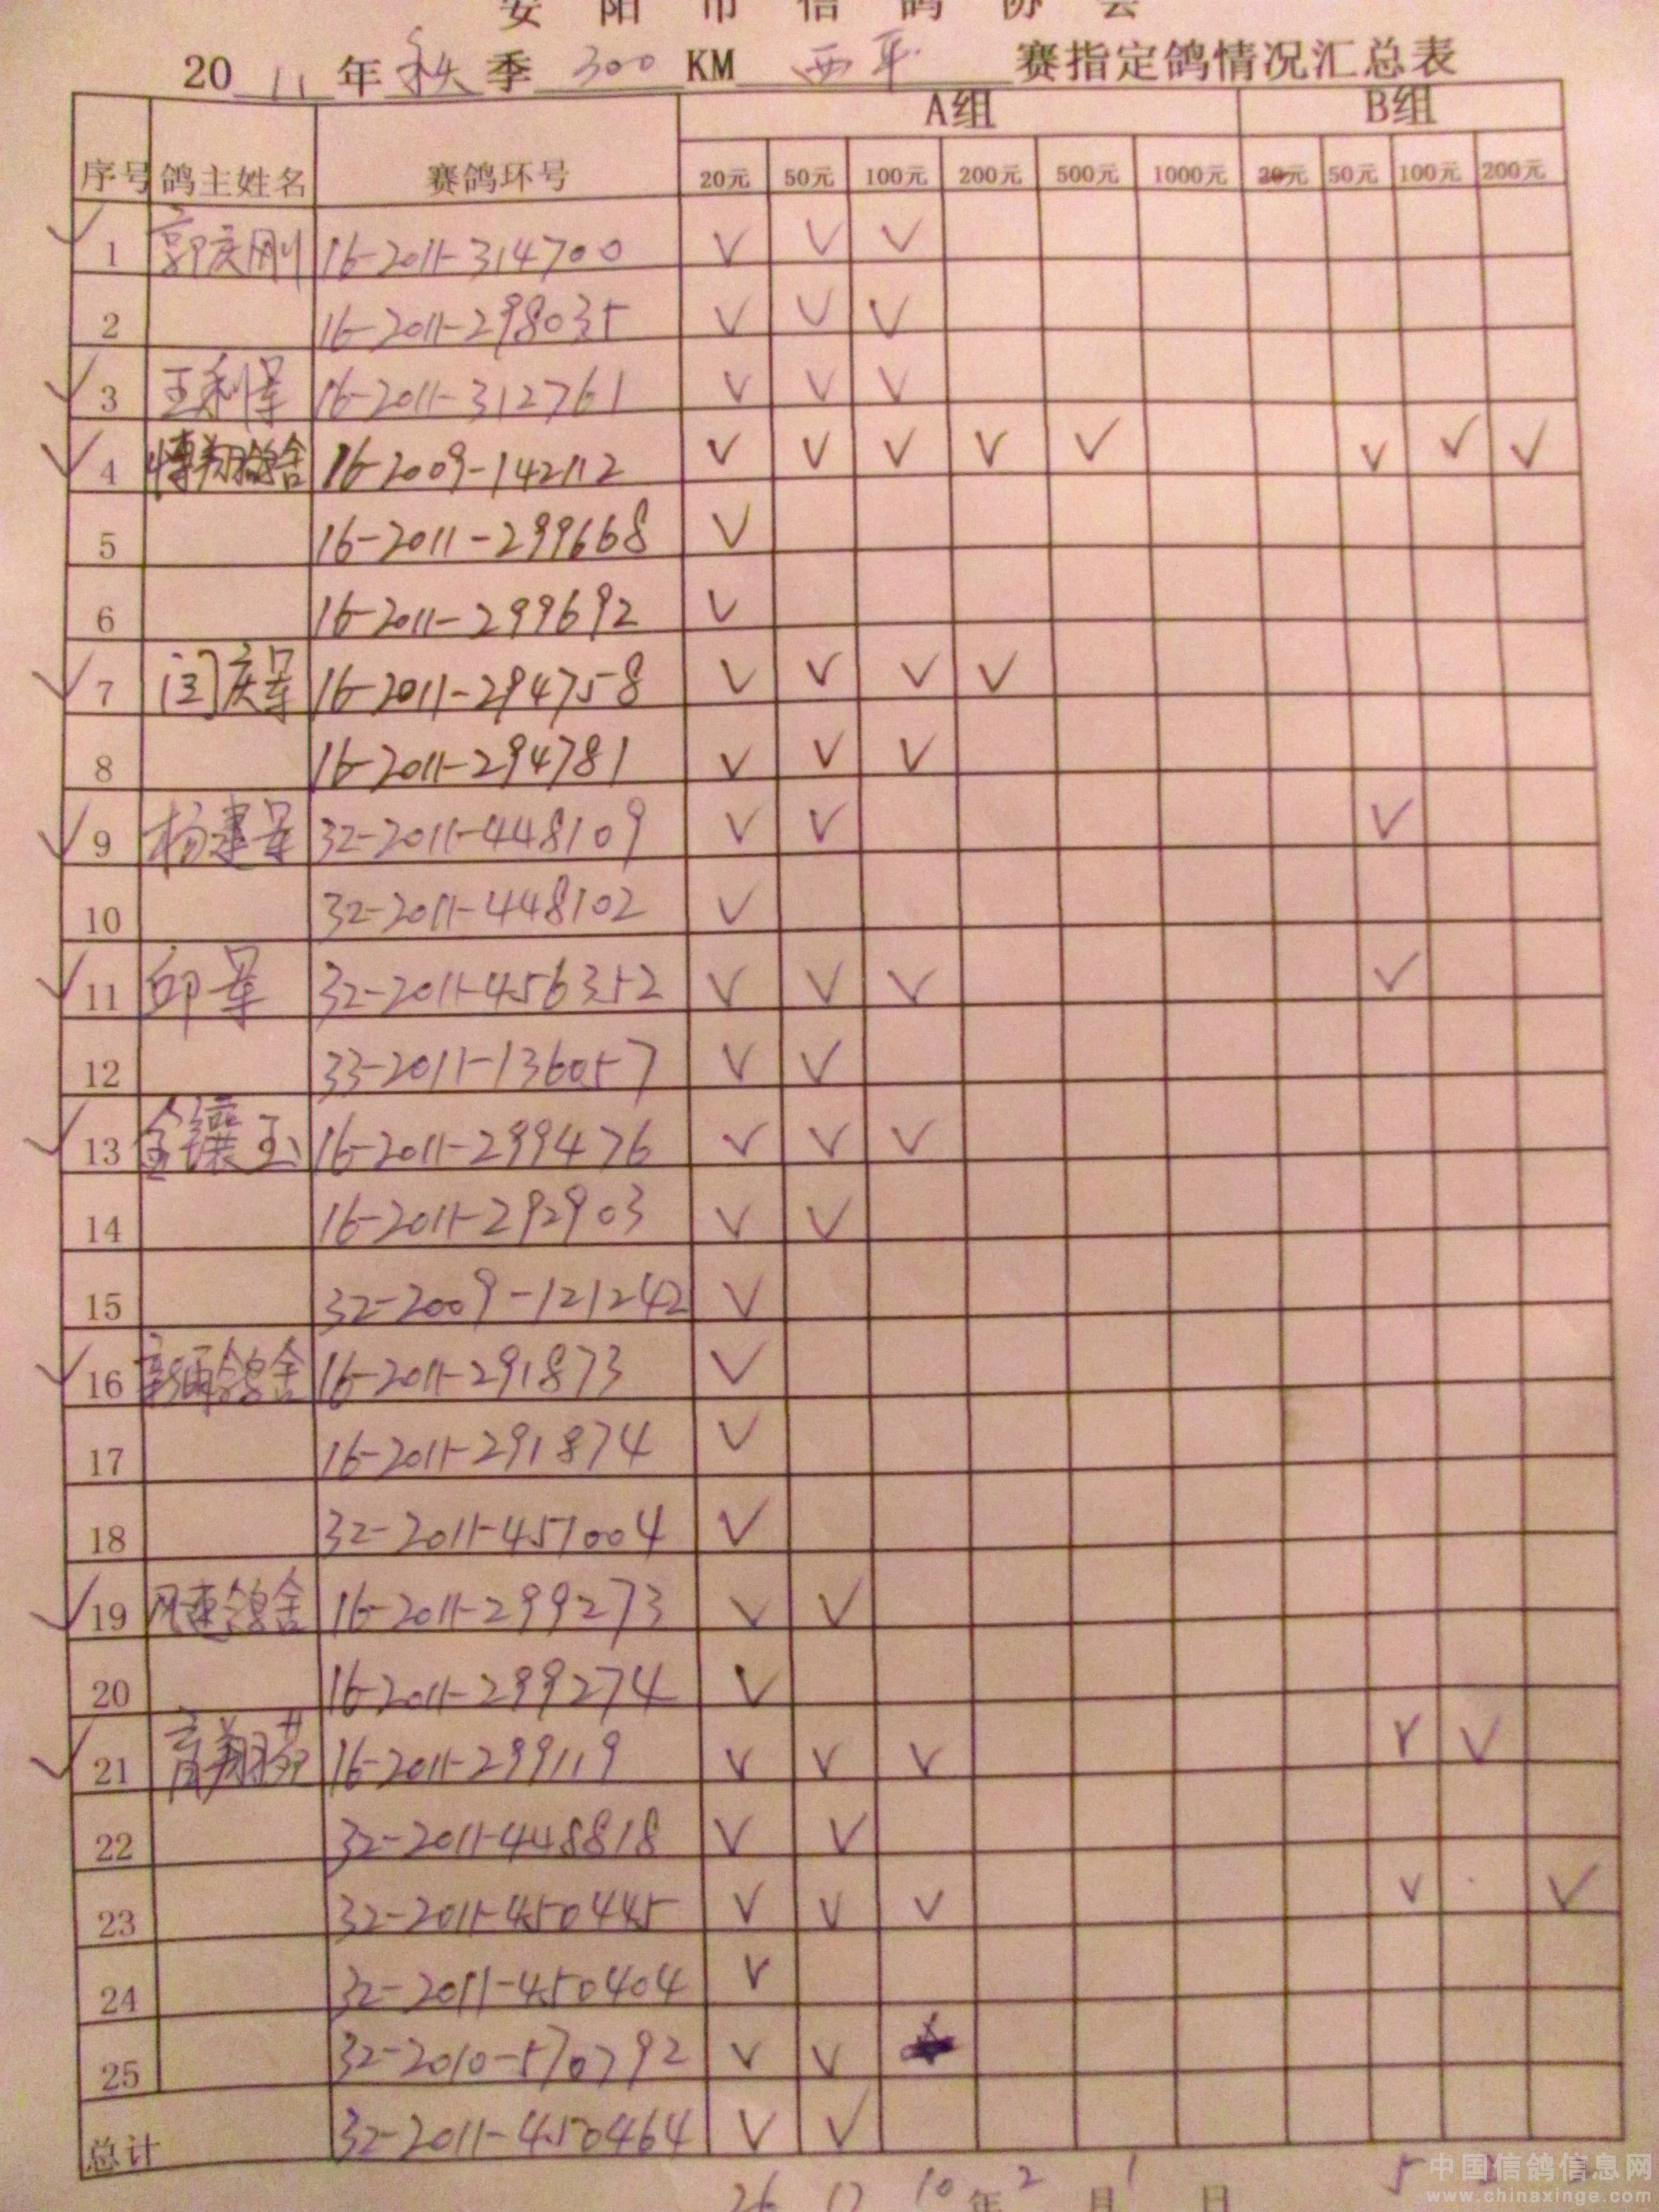 安阳市信鸽协会
20 11 年 秋 季 300 KM 西平 赛指定鸽情况汇总表
序号 鸽主姓名 赛鸽环号 A组 B组
20元 50元 100元 200元 500元 1000元 20元 50元 100元 200元
✓ 1 郭庆刚 16-2011-314700 V V V
2 16-2011-298035 V V V
✓ 3 王利军 16-2011-312761 V V V
✓ 4 博翔鸽舍 16-2009-142112 V V V V V V V V
5 16-2011-299668 V
6 16-2011-299692 V
✓ 7 闫庆军 16-2011-294758 V V V V
8 16-2011-294781 V V V
✓ 9 杨建军 32-2011-448109 V V V
10 32-2011-448102 V
✓ 11 邱军 32-2011-456352 V V V V
12 33-2011-136057 V V
✓ 13 金镶玉 16-2011-299476 V V V
14 16-2011-292903 V V
15 32-2009-121242 V
✓ 16 鸽舍 16-2011-291873 V
17 16-2011-291874 V
18 32-2011-451004 V
✓ 19 风速鸽舍 16-2011-299273 V V
20 16-2011-299274 V
✓ 21 育翔苑 16-2011-299119 V V V V V
22 32-2011-448818 V V
23 32-2011-450445 V V V V V
24 32-2011-450404 V
25 32-2010-570792 V V
总计 32-2011-450464 V V
26 17 10 年 2 月 1 日 5
中国信鸽信息网
www.chinaxinge.com